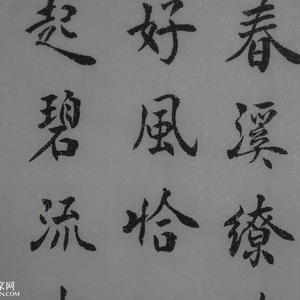 春溪缭
好風恰
起碧流
家网